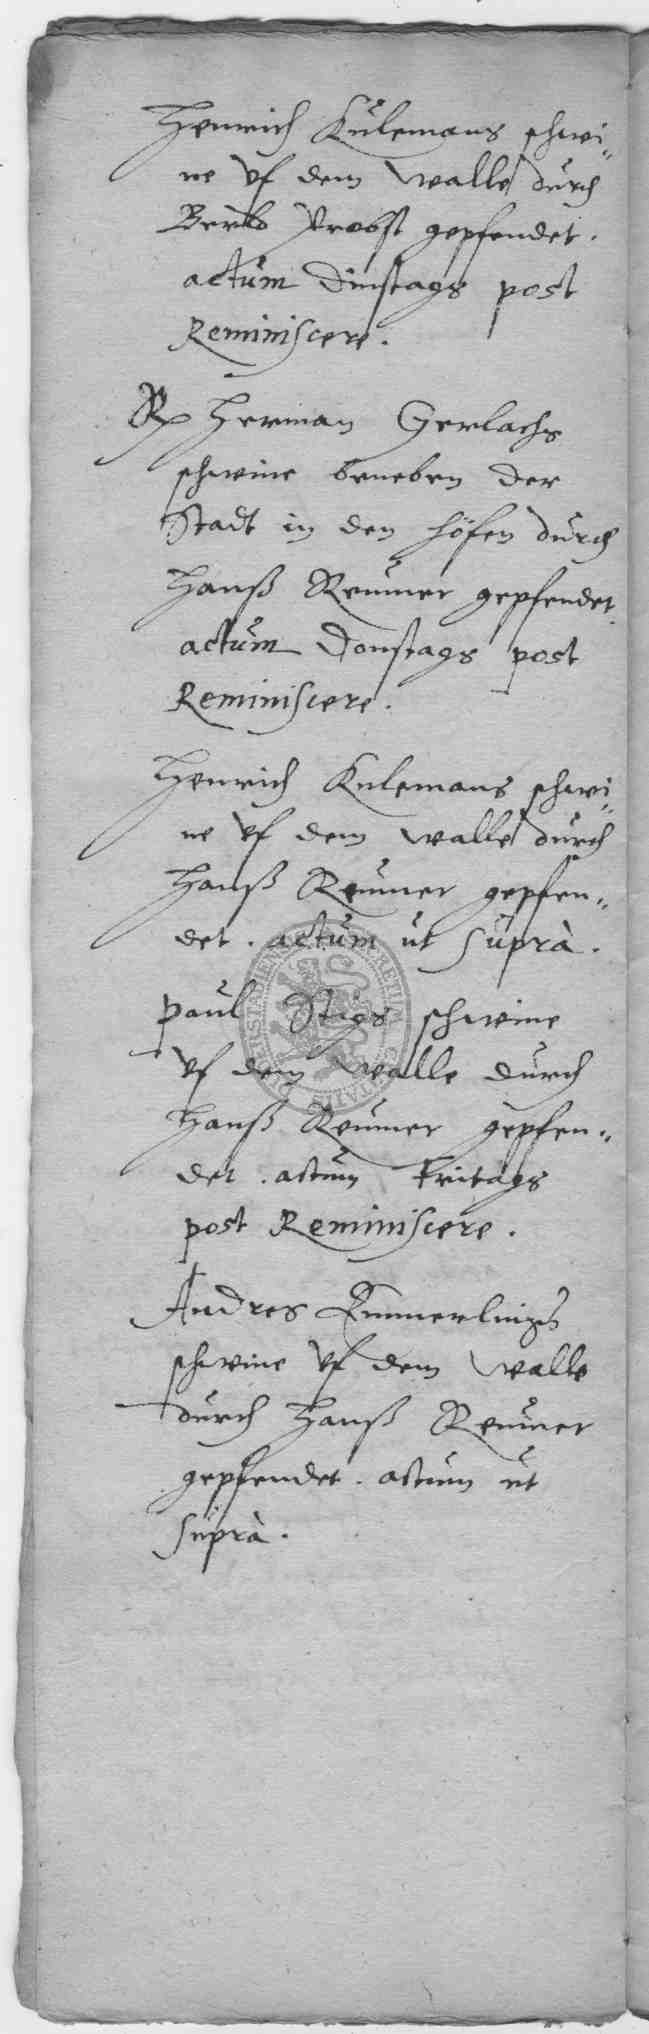 Henrich Kulemans schwi„
ne vf dem walle durch
Probst gepfendet.
actum Dinstags post
Reminiscere.
Herman Gerlachs
schweine beneben der
Stadt in den höfen durch
Hanß Reumer gepfendet
actum Donstags post
Reminiscere.
Henrich Kulemans schwi„
ne vf dem walle durch
Hanß Reumer gepfen„
det. actum ut suprà.
Paul Stigs schweine
vf dem walle durch
Hanß Reumer gepfen„
det. actum Fritags
post Reminiscere.
Andres Emmerlings
schwine vf dem walle
durch Hanß Reumer
gepfendet. actum ut
suprà.